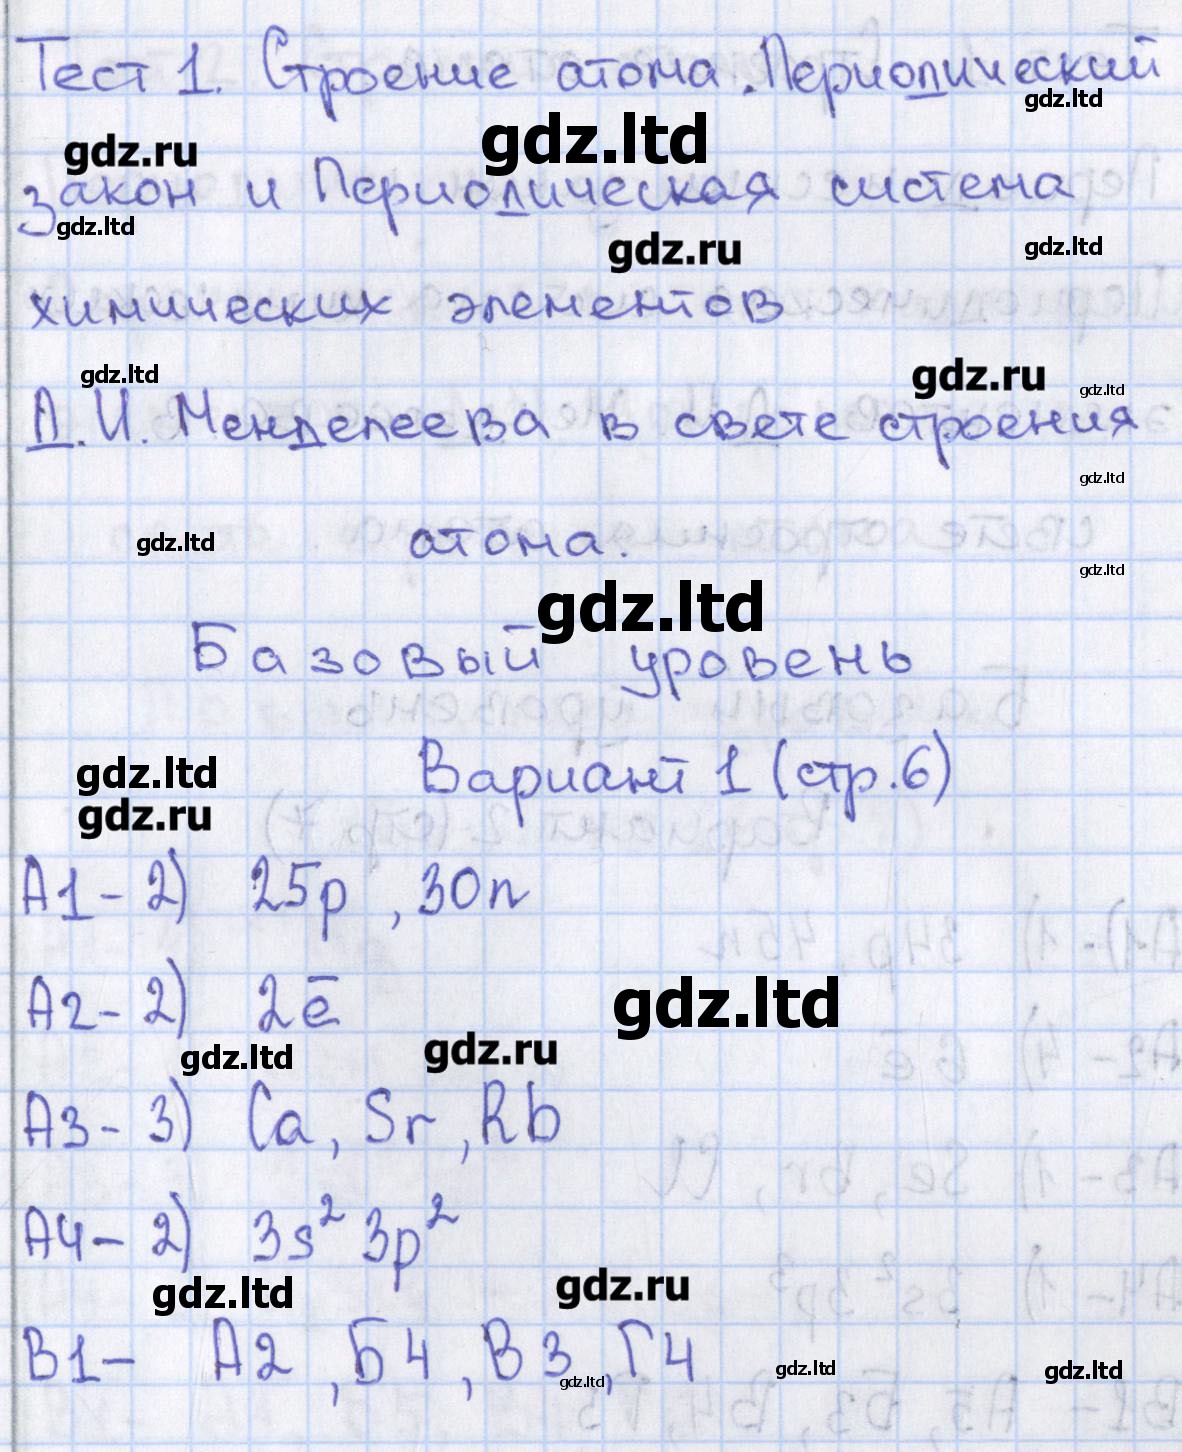 Тест 1. Строение атома. Периодический
gdz.ltd
gdz.ru gdz.ltd
закон и Периодическая система
gdz.ltd gdz.ru gdz.ltd
химических элементов
gdz.ltd gdz.ru gdz.ltd
Д.И. Менделеева в свете строения
gdz.ltd
gdz.ltd атома.
gdz.ltd
gdz.ltd
Базовый уровень
Вариант 1 (стр.6)
gdz.ltd
gdz.ru
А1- 2) 25p , 30n
А2- 2) 2ē
gdz.ltd
gdz.ltd gdz.ru
А3- 3) Ca, Sr, Rb
А4- 2) 3s² 3p²
gdz.ltd gdz.ru
В1- А2, Б4, В3, Г4
gdz.ltd gdz.ltd gdz.ltd